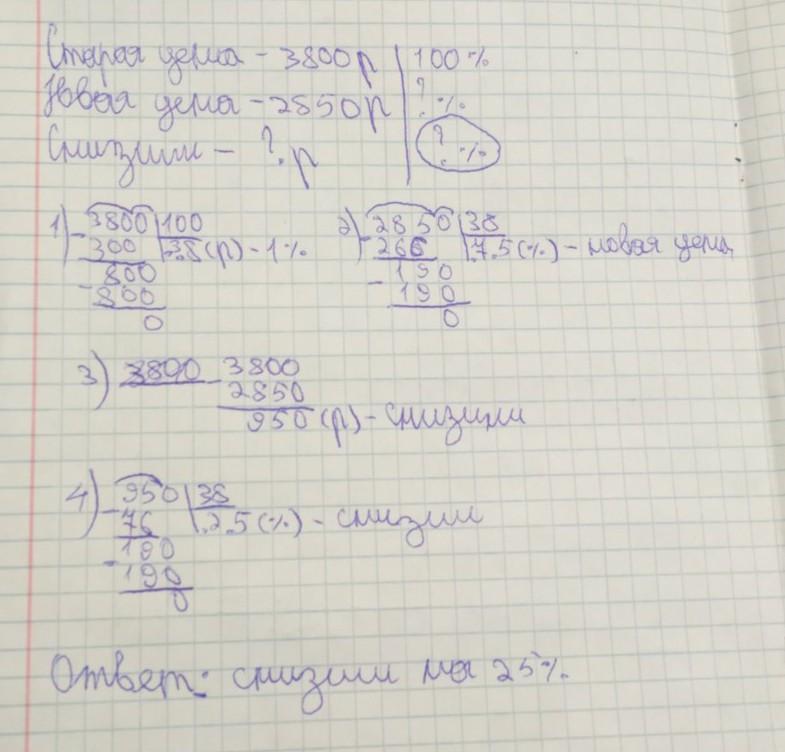 Старая цена - 3800р | 100%
Новая цена - 2850р | ? %
Снизили - ? р | ? %
1) 3800 | 100
- 300 | 38 (р) - 1%
800
- 800
0
2) 2850 | 38
- 266 | 75 (%) - новая цена
190
- 190
0
3) 3800 - 3800
2850
950 (р) - снизили
4) 950 | 38
- 76 | 25 (%) - снизили
190
- 190
0
Ответ: снизили на 25%.